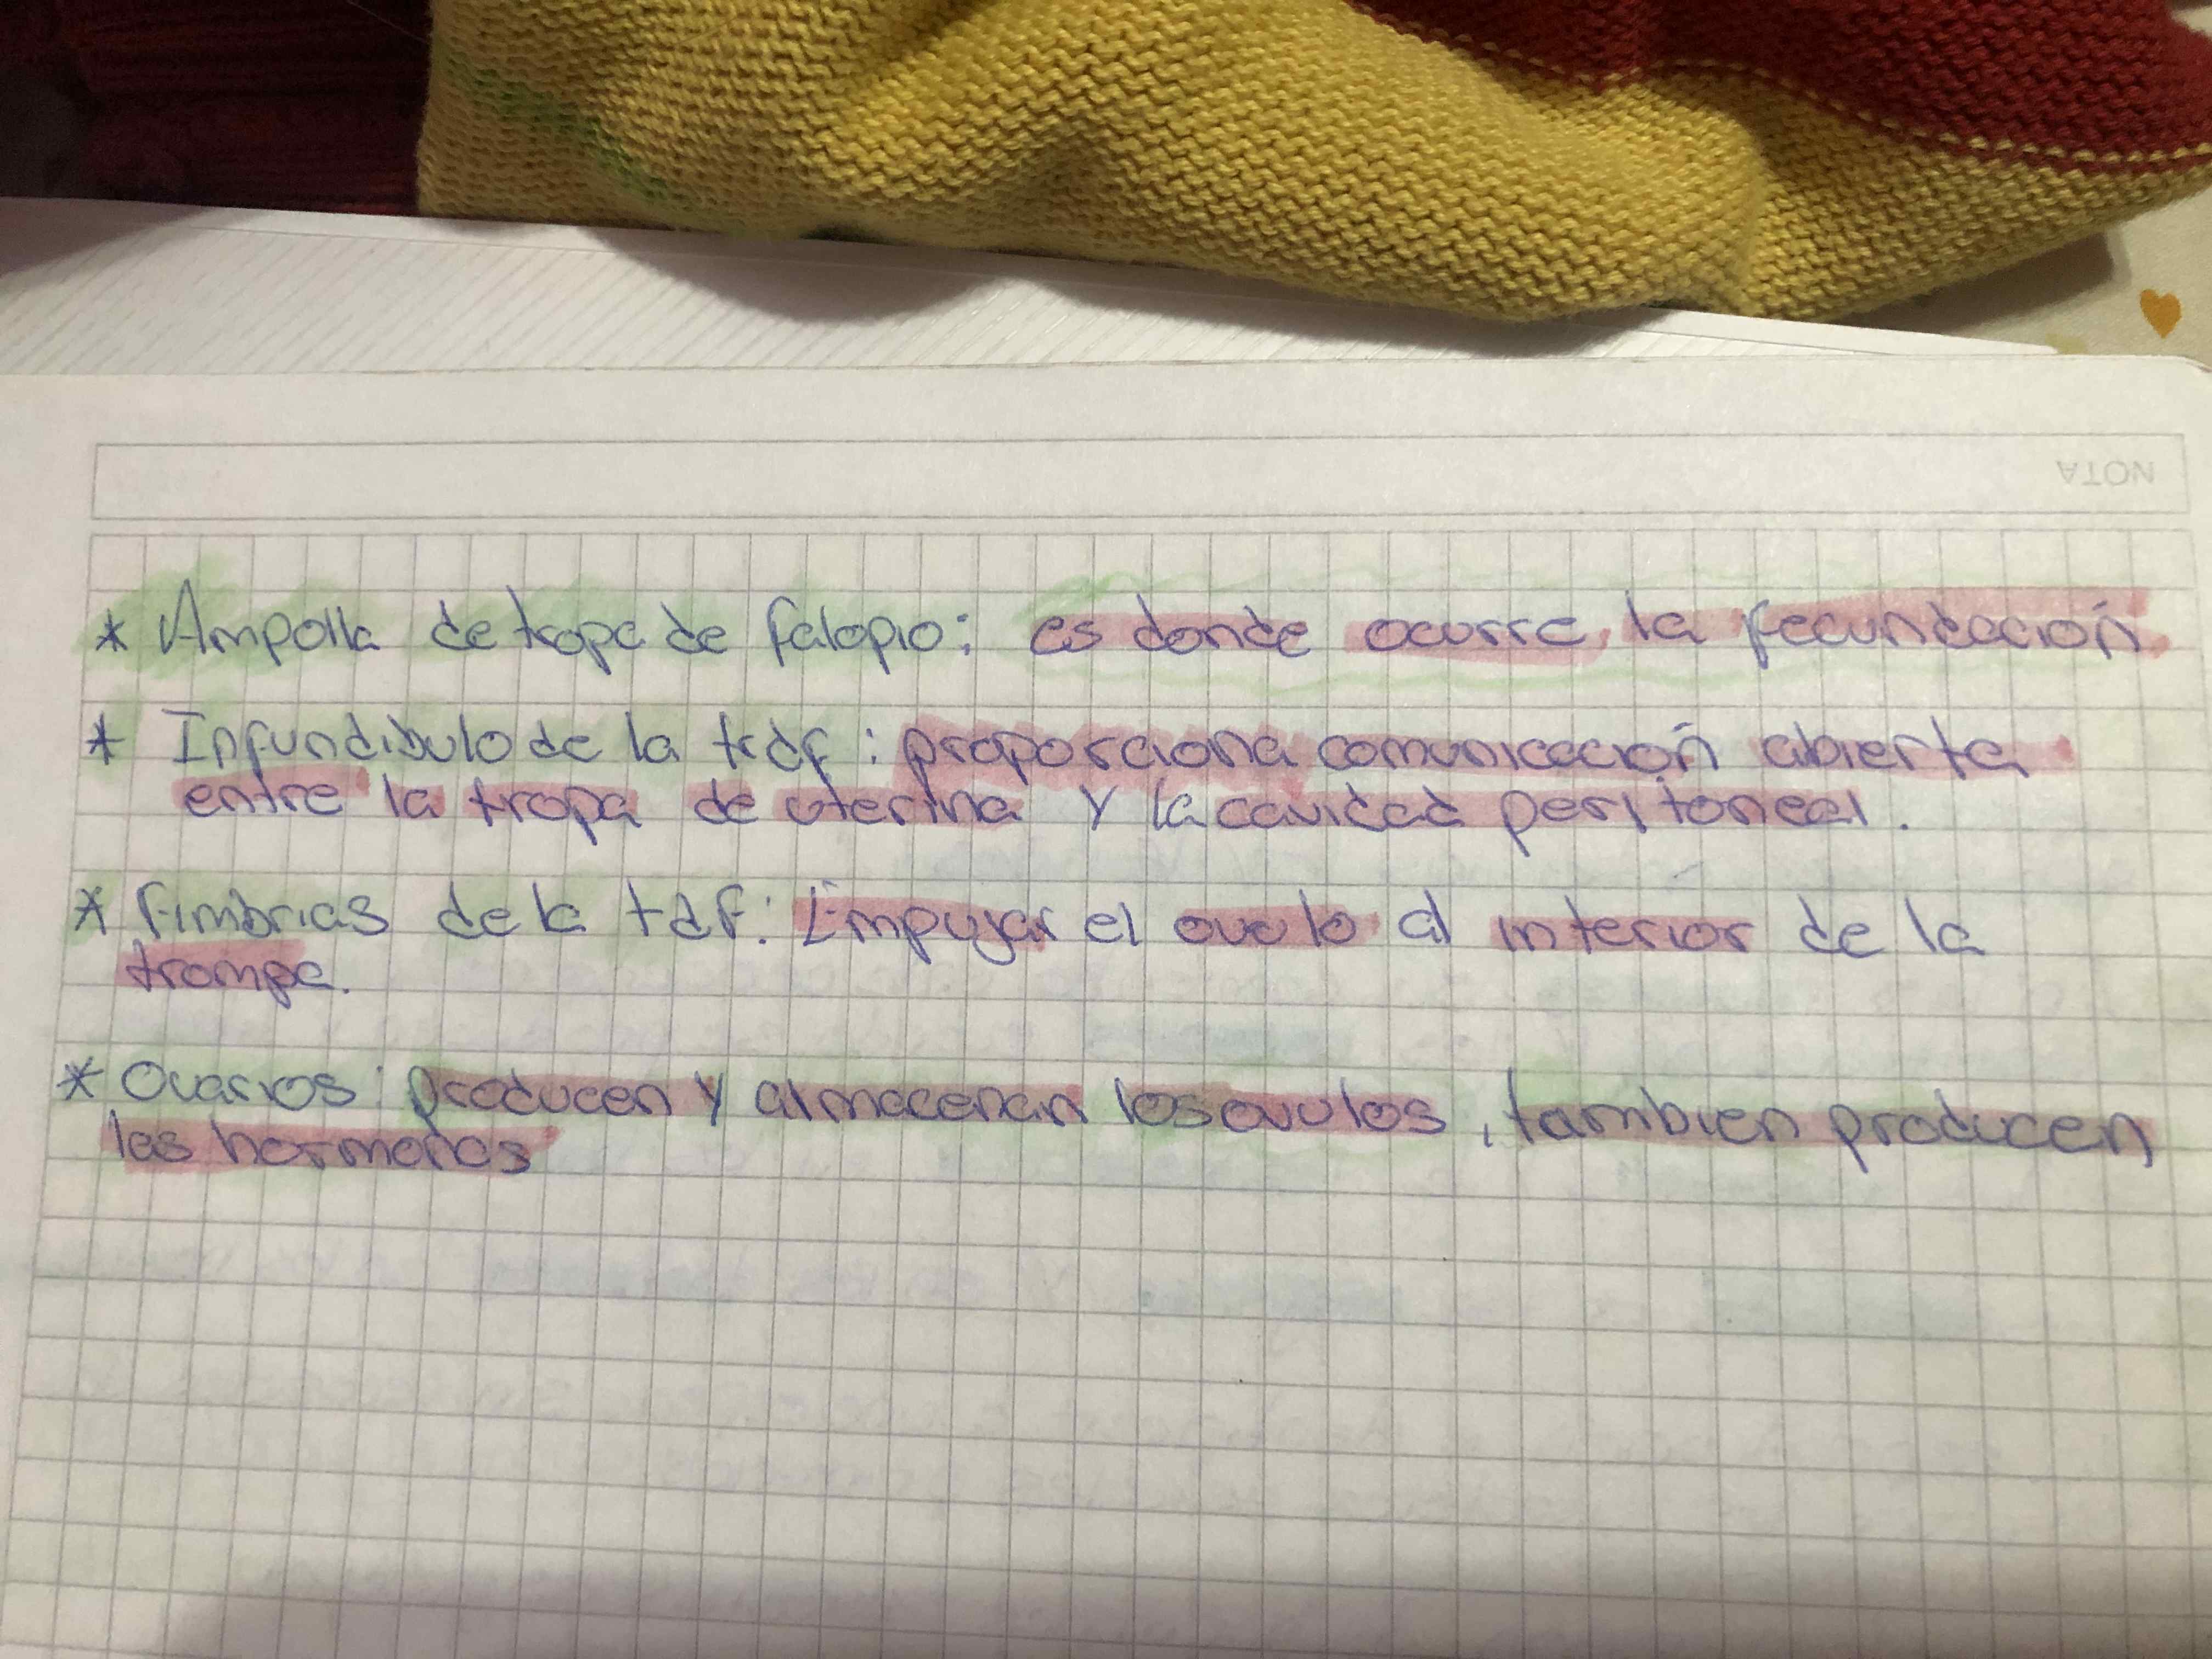 NOTA
* Ampolla de tropa de falopio: es donde ocurre la fecundación
* Infundibulo de la trdf: proporciona comunicación abierta
entre la tropa de uterina y la cavidad peritoneal.
* Fimbrias de la tdf: Empujar el ovulo al interior de la
trompa.
* Ovarios: producen y almacenan los ovulos, tambien producen
las hormonas